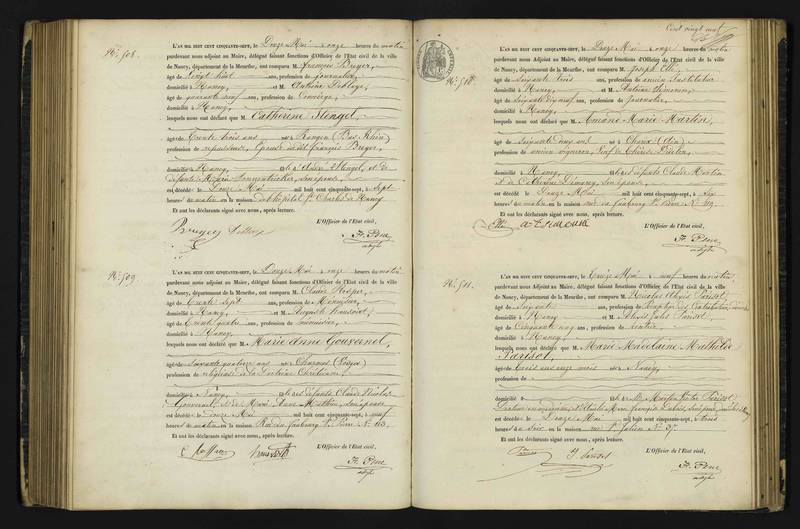 N.° 508.
L'AN MIL HUIT CENT CINQUANTE-SEPT, le Douze Mai à onze heures du matin
pardevant nous adjoint au Maire, délégué faisant fonctions d'Officier de l'Etat civil de la ville
de Nancy, département de la Meurthe, ont comparu M. François Breyer,
âgé de Vingt huit ans, profession de journalier,
domicilié à Nancy, et M. Antoine
âgé de quarante neuf ans, profession de Concierge,
domicilié à Nancy,
lesquels nous ont déclaré que M. Catherine Stengel,
âgée de Trente trois ans née à (Bas Rhin)
profession de repasseuse, Epouse dudit François Breyer,
domiciliée à Nancy,
défunte Marie
est décédée le Douze Mai mil huit cent cinquante-sept, à Sept
heures du matin en la maison de l'hôpital St Charles de Nancy
Et ont les déclarants signé avec nous, après lecture.
L'Officier de l'Etat civil,
N.° 509
L'AN MIL HUIT CENT CINQUANTE-SEPT, le Douze Mai à onze heures du matin
pardevant nous Adjoint au Maire, délégué faisant fonctions d'Officier de l'Etat civil de la ville
de Nancy, département de la Meurthe, ont comparu M. Claude
âgé de Trente Sept ans, profession de Menuisier,
domicilié à Nancy et M. Auguste
âgé de Trente quatre ans, profession de menuisier,
domicilié à Nancy,
lesquels nous ont déclaré que M. Marie Anne Gouvernel,
âgée de Soixante quatorze ans née à Charmes (Vosges)
profession de religieuse de la Doctrine Chrétienne,
domiciliée à Nancy, fille des défunts Claude Nicolas
Gouvernel et de Marie Anne
est décédée le Douze Mai mil huit cent cinquante-sept, à neuf
heures du matin en la maison Rue du faubourg St Pierre N.° 63.
Et ont les déclarants signé avec nous, après lecture.
L'Officier de l'Etat civil,
Cent vingt neuf
N.° 510
L'AN MIL HUIT CENT CINQUANTE-SEPT, le Douze Mai à onze heures du matin
pardevant nous Adjoint au Maire, délégué faisant fonctions d'Officier de l'Etat civil de la ville
de Nancy, département de la Meurthe, ont comparu M. Joseph Elle,
âgé de Soixante trois ans, profession de ancien Instituteur
domicilié à Nancy et M. Antoine Simonin,
âgé de Soixante dix neuf ans, profession de journalier,
domicilié à Nancy,
lesquels nous ont déclaré que M. Amand Marie Martin,
âgé de Soixante douze ans né à
profession de ancien vigneron, Veuf de Thérèse
domicilié à Nancy, fils des défunts Claude Martin
et de Catherine
est décédé le Douze Mai mil huit cent cinquante-sept, à Sept
heures du matin en la maison rue du faubourg St Pierre N.° 119.
Et ont les déclarants signé avec nous, après lecture.
L'Officier de l'Etat civil,
Elle
N.° 511.
L'AN MIL HUIT CENT CINQUANTE-SEPT, le Treize Mai à neuf heures du matin,
pardevant nous Adjoint au Maire, délégué faisant fonctions d'Officier de l'Etat civil de la ville
de Nancy, département de la Meurthe, ont comparu M. Nicolas Alexis Parisot,
âgé de Soixante ans, profession de
domicilié à Nancy et M. Alexis Jules Parisot,
âgé de Cinquante cinq ans, profession de rentier,
domicilié à Nancy,
lesquels nous ont déclaré que M. Marie Madelaine Mathilde
Parisot,
âgée de trois ans onze mois née à Nancy
profession de
domiciliée à fille de M. Victor Parisot
Docteur en médecine,
est décédée le Douze Mai mil huit cent cinquante-sept, à trois
heures du Soir en la maison rue St Julien N.° 37.
Et ont les déclarants signé avec nous, après lecture.
L'Officier de l'Etat civil,
J. Parisot